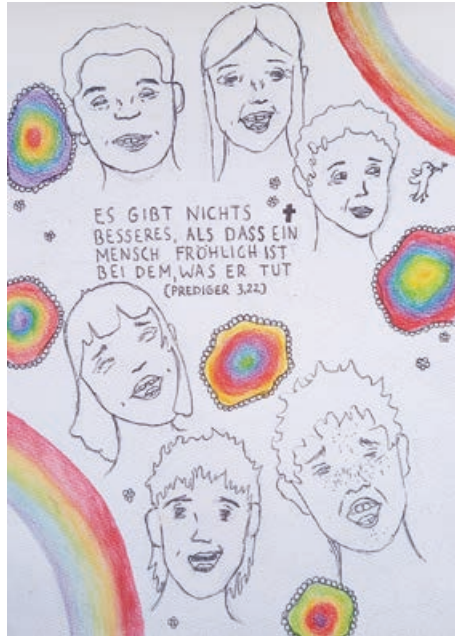 ES GIBT NICHTS
BESSERES, ALS DASS EIN
MENSCH FRÖHLICH IST
BEI DEM, WAS ER TUT
(PREDIGER 3,22)